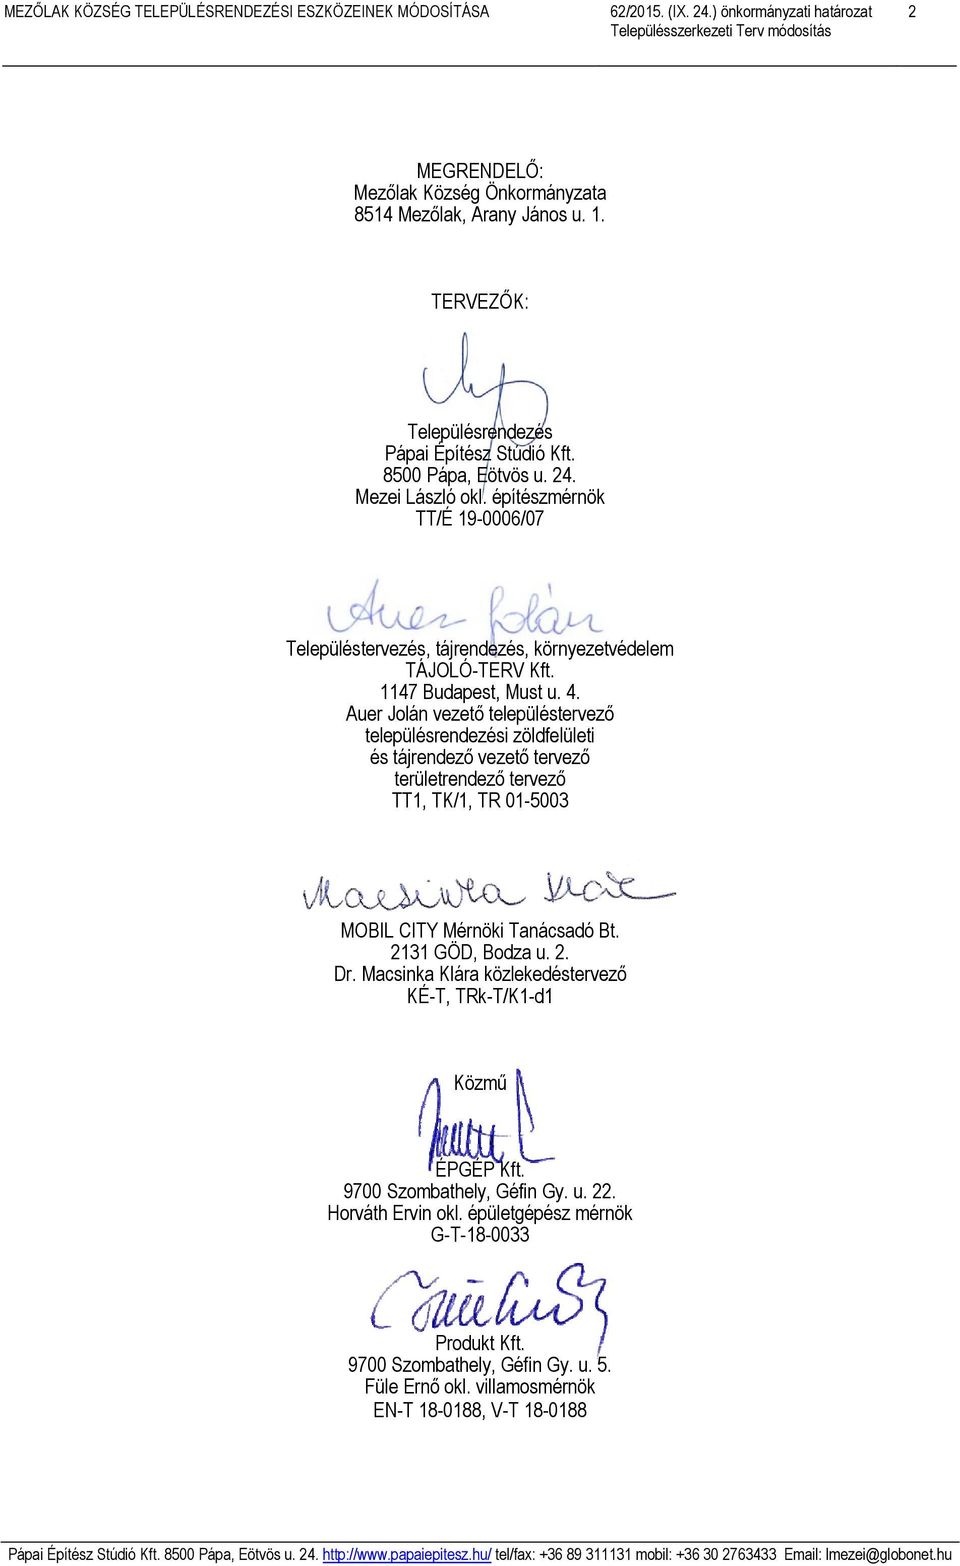 MEZŐLAK KÖZSÉG TELEPÜLÉSRENDEZÉSI ESZKÖZEINEK MÓDOSÍTÁSA 62/2015. (IX. 24.) önkormányzati határozat 2
Településszerkezeti Terv módosítás
MEGRENDELŐ:
Mezőlak Község Önkormányzata
8514 Mezőlak, Arany János u. 1.
TERVEZŐK:
Településrendezés
Pápai Építész Stúdió Kft.
8500 Pápa, Eötvös u. 24.
Mezei László okl. építészmérnök
TT/É 19-0006/07
Auer Jolán
Településtervezés, tájrendezés, környezetvédelem
TÁJOLÓ-TERV Kft.
1147 Budapest, Must u. 4.
Auer Jolán vezető településtervező
településrendezési zöldfelületi
és tájrendező vezető tervező
területrendező tervező
TT1, TK/1, TR 01-5003
Macsinka Klára
MOBIL CITY Mérnöki Tanácsadó Bt.
2131 GÖD, Bodza u. 2.
Dr. Macsinka Klára közlekedéstervező
KÉ-T, TRk-T/K1-d1
Közmű
ÉPGÉP Kft.
9700 Szombathely, Géfin Gy. u. 22.
Horváth Ervin okl. épületgépész mérnök
G-T-18-0033
Produkt Kft.
9700 Szombathely, Géfin Gy. u. 5.
Füle Ernő okl. villamosmérnök
EN-T 18-0188, V-T 18-0188
Pápai Építész Stúdió Kft. 8500 Pápa, Eötvös u. 24. http://www.papaiepitesz.hu/ tel/fax: +36 89 311131 mobil: +36 30 2763433 Email: lmezei@globonet.hu